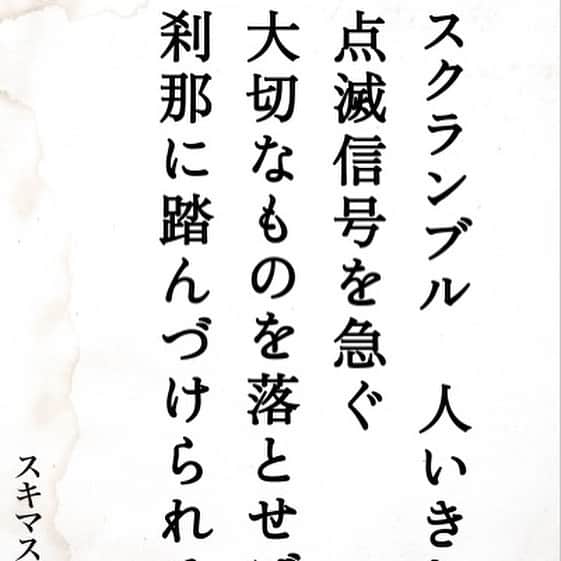 スクランブル　人いき
点滅信号を急ぐ
大切なものを落とせ
刹那に踏んづけられ
スキマス